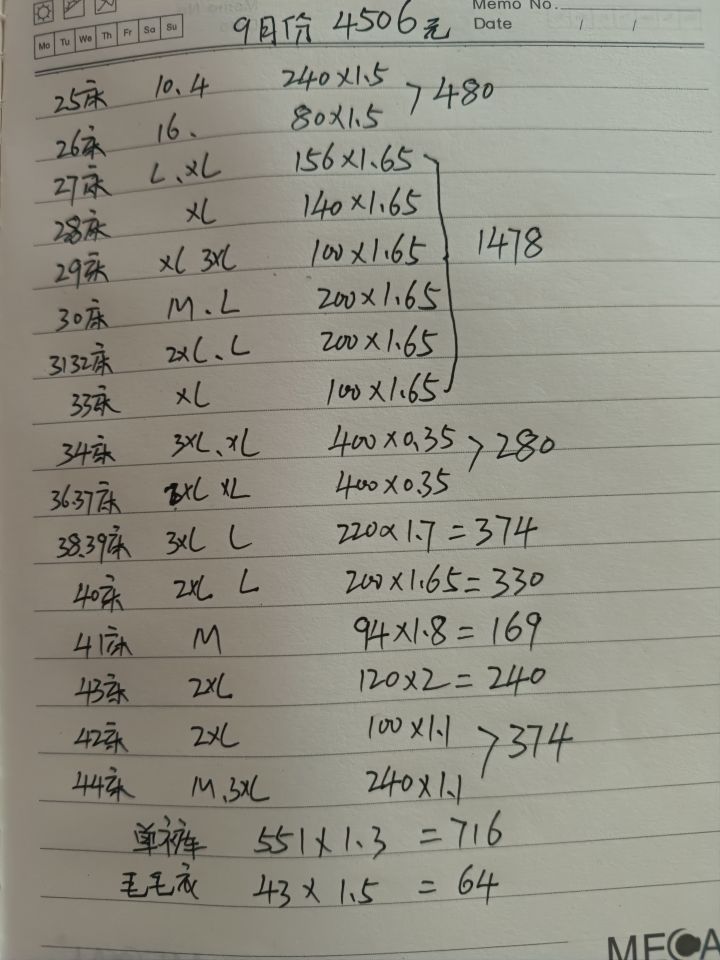 Memo No.
Mo Tu We Th Fr Sa Su
Date / /
9月份 4506元
25床 10.4 240×1.5
480
26床 16. 80×1.5
27床 L、XL 156×1.65
28床 XL 140×1.65
29床 XL 3XL 100×1.65
1478
30床 M.L 200×1.65
31 32床 2XL、L 200×1.65
33床 XL 100×1.65
34床 3XL、XL 400×0.35
280
36.37床 XL XL 400×0.35
38.39床 3XL L 220×1.7=374
40床 2XL L 200×1.65=330
41床 M 94×1.8=169
43床 2XL 120×2=240
42床 2XL 100×1.1
374
44床 M、3XL 240×1.1
单裤库 551×1.3 =716
毛毛衣 43×1.5 =64
MECA